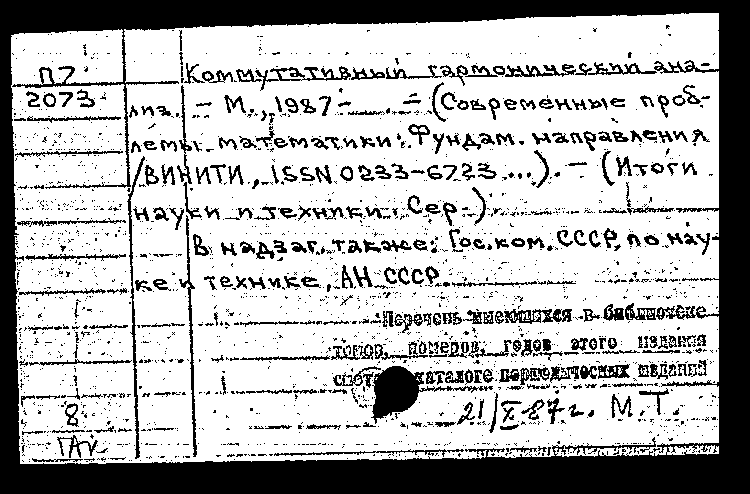 П7 Коммутативный гармонический ана-
2073 лиз. – М., 1987 – . – (Современные проб-
лемы математики: Фундам. направления
/ВИНИТИ, ISSN 0233-6723 ...). – (Итоги
науки и техники. Сер.)
В надзаг. также: Гос. ком. СССР по нау-
ке и технике, АН СССР.
Перечень имеющихся в библиотеке
томов, номеров, годов этого издания
смотри в каталоге периодических изданий
8 21/X-87 г. М.Т.